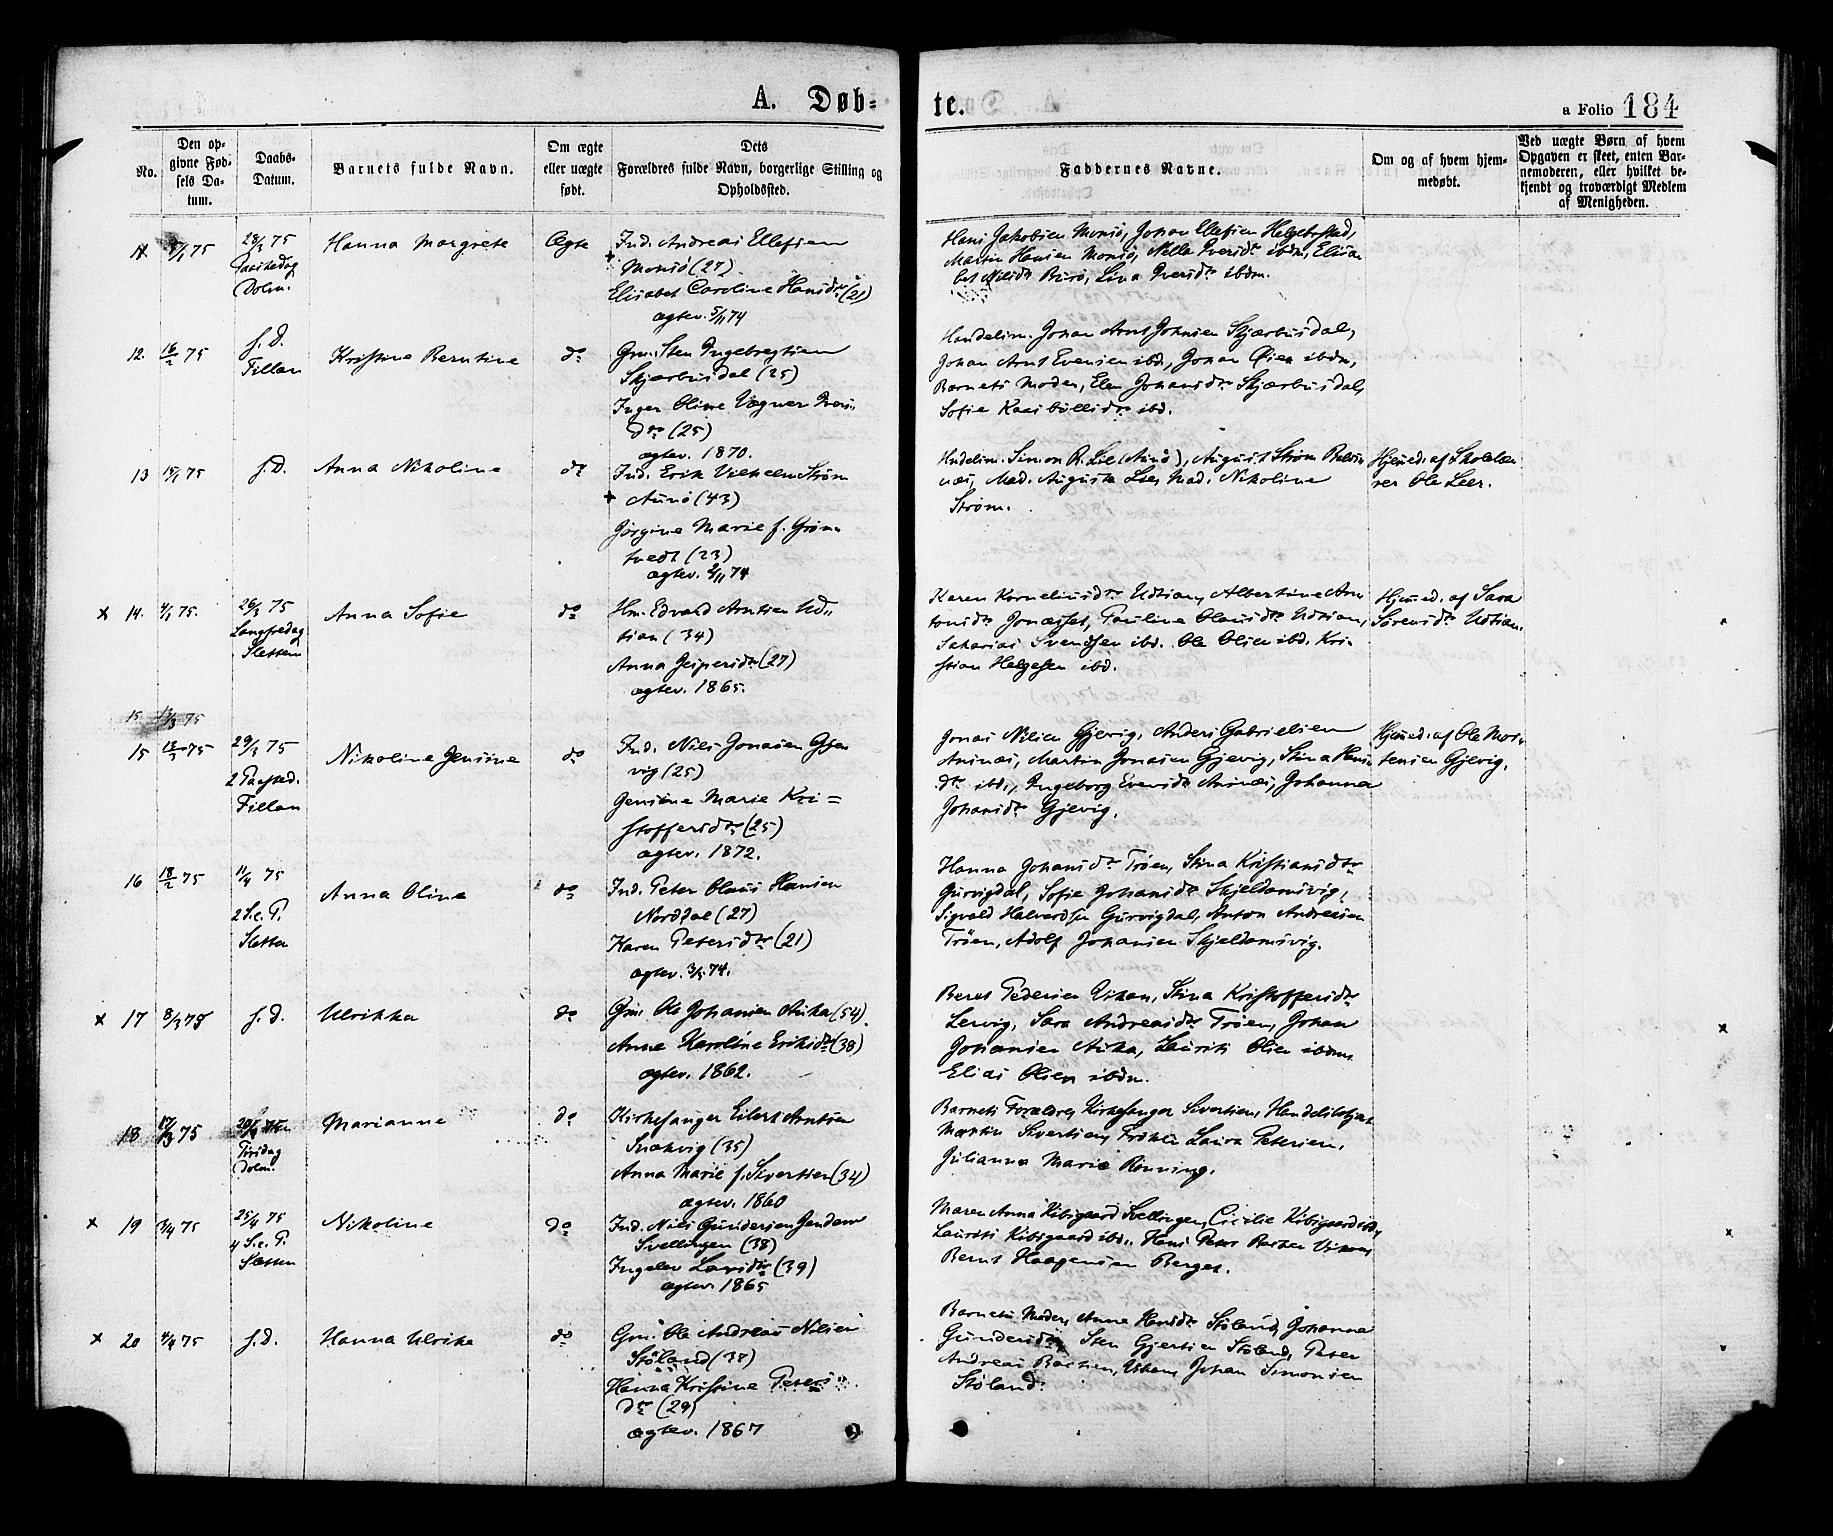 A. Døb=
te.
a Folio 184
No.
Den op-
givne Fød-
sels Da-
tum.
Daabs-
Datum.
Barnets fulde Navn.
Om ægte
eller uægte
født.
Dets
Forældres fulde Navn, borgerlige Stilling og
Opholdssted.
Faddernes Navne.
Om og af hvem hjem-
medøbt.
Ved uægte Børn af hvem
Opgaven er skeet, enten Bar-
nemoderen, eller hvilket be-
kjendt og troværdigt Medlem
af Menigheden.
11 /1 75
28/3 75
Paaskedag
Dolm.
Hanna Margrete
Ægte
Ind. Andreas Ellefsen
Monsö (27)
Elisabet Caroline Hansdtr (21)
ægtev. 5/11 74
Hans Jakobsen Monsö, Johan Ellefsen Helgebostad,
Martin Hansen Monsö, Nella Iversdtr ibdm, Elisa-
bet Nilsdtr Burö, Lina Iversdtr ibdm.
12. 16/2 75
s. D.
Fillan
Kristine Berntine
do
Gm. Sten Ingebregtsen
Skjærbusdal (25)
Inger Oline Vegner Ivers
dtr (25)
ægtev. 1870.
Handelsm. Johan Arnt Johnsen Skjærbusdal,
Johan Arnt Evensen ibd, Johan Öien ibdm,
Barnets Moder, Elen Johansdtr Skjærbusdal,
Sofie ibd.
13 15/1 75
s. D.
Anna Nikoline
do
Ind. Erik Vilhelm Strøm
Aunö (43)
Jørgine Marie f. Grøn-
tvedt (23)
ægtev. 2/11 74
Hndelsm. Simon R. Lie (Aunö), August Strøm
Mad. Augusta Lie, Mad. Nikoline
Strøm.
Hjemmed. af Skolelæ-
rer Ole Leer.
x 14. 4/1 75.
26/3 75
Langfredag
Sletten
Anna Sofie
do
Hm. Edvard Arntsen Ud-
tian (34)
Anna Jespersdtr (27)
ægtev. 1865.
Karen Kornelius dtr Udtian, Albertine An-
tonsdtr Jonasset, Pauline Olausdtr Udtian,
Sakarias Svendsen ibd. Ole Olsen ibd. Kri-
stian Helgesen ibd.
Hjemmed. af Sara
Sörensdtr Udtian.
15. 13/3 75
15 75
29/3 75
2 Paasked.
Fillan
Nikoline Jensine
do
Ind. Nils Jonasen Gje-
vig (25)
Jensine Marie Kri=
stoffersdtr (25)
ægtev. 1872.
Jonas Nilsen Gjevig, Anders Gabrielsen
Ansnæs, Martin Jonasen Gjevig, Stina Hans-
dtr ibd., Ingeborg Evensdtr Ansnæs, Johanna
Johansdtr Gjevig.
Hjemmed. af Ole Mor-
tensen Gjevig.
16 18/2 75
11/4 75
2 S. e. P.
Sletten
Anna Oline
do
Ind. Peter Olaus Hansen
Norddal (27)
Karen Petersdtr (21)
ægtev. 74.
Hanna Johansdtr Trøen, Stina Kristiansdtr
Gurvigdal, Sofie Johansdtr Skjeldamsvig,
Sigvald Halvordsen Gurvigdal, Anton Andreasen
Trøen, Adolf Johansen Skjeldamsvig.
x 17 8/3 75
s. d.
Ulrikka
do
Gm. Ole Johansen Auka (54).
Anne Karoline Eriksdtr (38)
ægtev. 1862.
Beret Pedersen Vikan, Stina Kristoffersdtr
Lervig, Sara Andreasdtr Trøen, Johan
Johansen Auka, Laurits Olsen ibdm.
Elias Olsen ibdm.
18 17/3 75
Tirsdag
Dolm.
Marianne
do
Kirkesanger Eilert Arntsen
Snekvig (35)
Anna Marie f. Sivertsen (34)
ægtev. 1860
Barnets Forældre, Kirkesanger Sivertsen,
Martin Sivertsen, Frøken Laura Petersen,
Julianna Marie Rønning.
x 19 3/4 75
25/4 75
4 S. e. P.
Sletten
Nikoline
do
Ind. Nils Gundersen
Svellingen (38)
Ingelev Larsdtr (39)
ægtev. 1865
Maren Anna Kibsgaard Svellingen, Cicilie Kibsgaard ibd,
Laurits Kibsgaard ibd., Hans Peter Vikan,
Bernt Haagensen Berget.
x 20 4/4 75
s. D.
Hanna Ulrike
do
Gm. Ole Andreas Nilsen
Stöland (37)
Hanna Kristine Peters-
dtr (29)
ægtev. 1867
Barnets Moder, Anne Hansdtr Stöland, Johanna
Gundersdtr, Sten Gjertsen Stöland, Peter
Andreas Vikan, Johan Simonsen
Stöland.